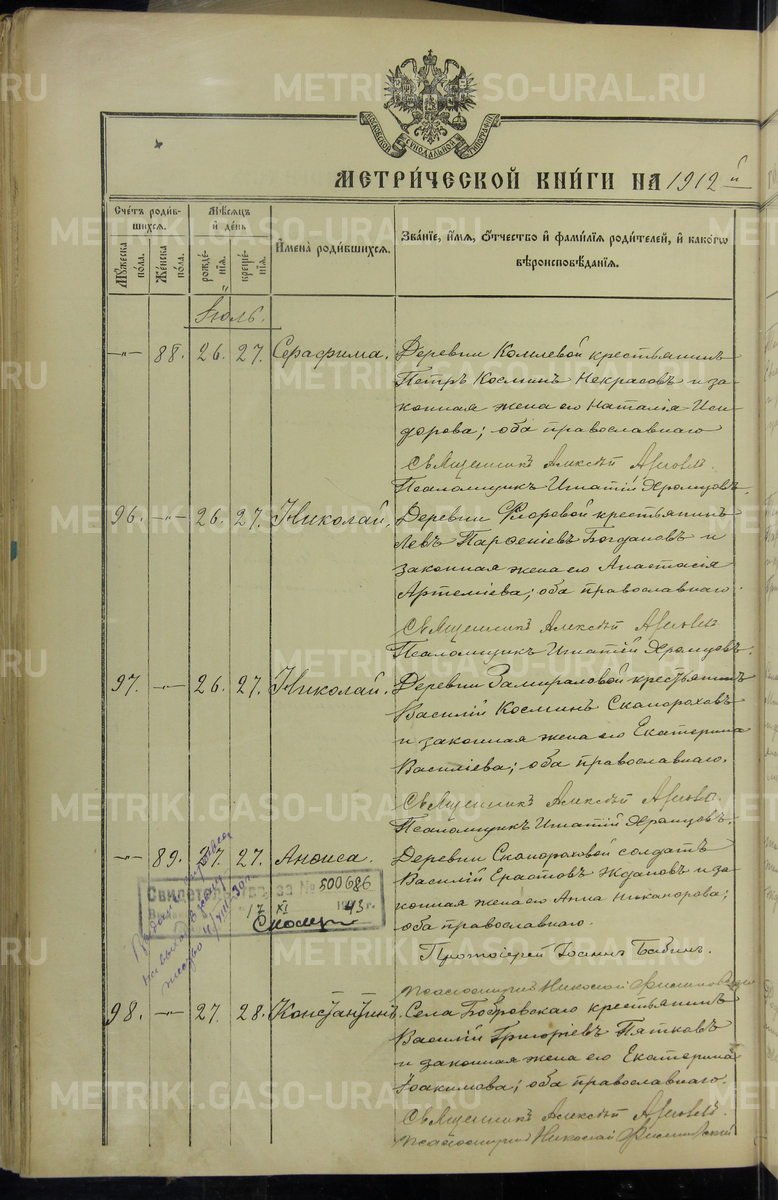 МОСКОВСКОЙ СѴНОДАЛЬНОЙ ТИПОГРАФІИ
МЕТРИ́ЧЕСКОЙ КНИ́ГИ НА 1912 й
Сче́тъ роди́вшихся.
Мѹ́жеска по́ла.
Же́нска по́ла.
Мѣ́сяцъ и̑ де́нь
рожде́нїя.
креще́нїя.
И̑мена̀ роди́вшихся.
Зва́нїе, и̑́мя, ѻ҆́тчество и̑ фами́лїя роди́телей, и̑ како́гѡ вѣроисповѣ́данїя.
Іюль.
—"— 88. 26. 27. Серафима.
Деревни Комлевой крестьянинъ
Петръ Косминъ Некрасовъ и за-
конная жена его Наталія Иси-
дорова; оба православнаго
Священникъ Алексѣй
Псаломщикъ Игнатій Храмцовъ.
96. —"— 26. 27. Николай.
Деревни Фроровой крестьянинъ
Левъ Парѳеніевъ Богдановъ и
законная жена его Анастасія
Артеміева; оба православнаго.
Священникъ Алексѣй
Псаломщикъ Игнатій Храмцовъ.
97. —"— 26. 27. Николай.
Деревни Замираловой крестьянинъ
Василій Косминъ Скапороховъ
и законная жена его Екатерина
Василіева; оба православнаго.
Священникъ Алексѣй
Псаломщикъ Игнатій Храмцовъ.
—"— 89. 27. 27. Анѳиса.
Деревни Скапороховой солдатъ
Василій Ерастовъ Ждановъ и за-
конная жена его Анна Никанорова;
оба православнаго.
Протоіерей Іоаннъ Бабинъ.
Псаломщикъ Николай
Свидетельство за № 500686
17 XI 1943 г.
98. —"— 27. 28. Константинъ.
Села Бобровскаго крестьянинъ
Василій Григоріевъ Пятковъ
и законная жена его Екатерина
Іоакимова; оба православнаго.
Священникъ Алексѣй
Псаломщикъ Николай
METRIKI.GASO-URAL.RU